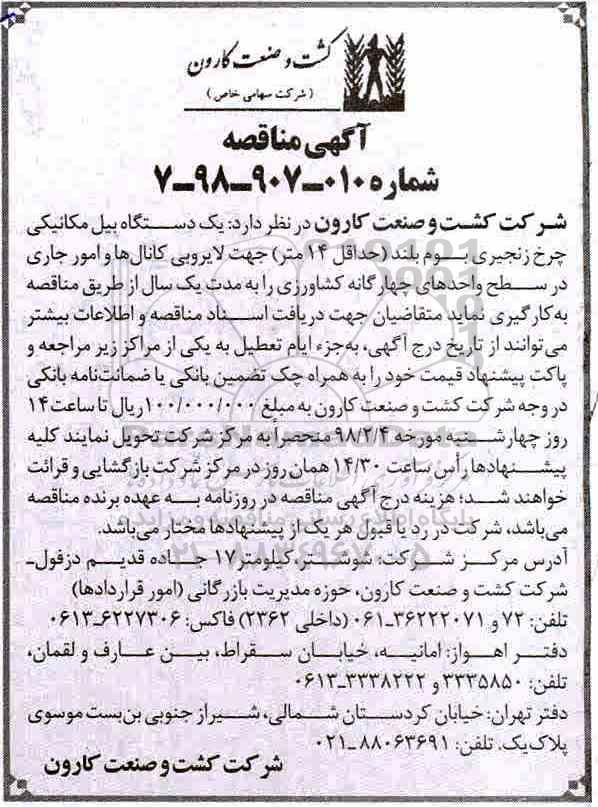 کشت و صنعت کارون
( شرکت سهامی خاص )
آگهی مناقصه
شماره ۰۱۰-۹۰۷-۹۸-۷
شرکت کشت و صنعت کارون در نظر دارد: یک دستگاه بیل مکانیکی
چرخ زنجیری بوم بلند (حداقل ۱۴ متر) جهت لایروبی کانال‌ها و امور جاری
در سطح واحدهای چهارگانه کشاورزی را به مدت یک سال از طریق مناقصه
به‌کارگیری نماید متقاضیان جهت دریافت اسناد مناقصه و اطلاعات بیشتر
می‌توانند از تاریخ درج آگهی، به‌جزء ایام تعطیل به یکی از مراکز زیر مراجعه و
پاکت پیشنهاد قیمت خود را به همراه چک تضمین بانکی یا ضمانت‌نامه بانکی
در وجه شرکت کشت و صنعت کارون به مبلغ ۱۰۰/۰۰۰/۰۰۰ ریال تا ساعت ۱۴
روز چهارشنبه مورخه ۹۸/۲/۴ منحصراً به مرکز شرکت تحویل نمایند کلیه
پیشنهادها رأس ساعت ۱۴/۳۰ همان روز در مرکز شرکت بازگشایی و قرائت
خواهند شد؛ هزینه درج آگهی مناقصه در روزنامه به عهده برنده مناقصه
می‌باشد، شرکت در رد یا قبول هر یک از پیشنهادها مختار می‌باشد.
آدرس مرکز شرکت: شوشتر، کیلومتر ۱۷ جاده قدیم دزفول-
شرکت کشت و صنعت کارون، حوزه مدیریت بازرگانی (امور قراردادها)
تلفن: ۷۲ و ۳۶۲۲۲۰۷۱-۰۶۱ (داخلی ۲۳۶۲) فاکس: ۶۲۲۷۳۰۶-۰۶۱۳
دفتر اهواز: امانیه، خیابان سقراط، بین عارف و لقمان،
تلفن: ۳۳۳۵۸۵۰ و ۳۳۳۸۲۲۲-۰۶۱۳
دفتر تهران: خیابان کردستان شمالی، شیراز جنوبی بن‌بست موسوی
پلاک یک. تلفن: ۸۸۰۶۳۶۹۱-۰۲۱
شرکت کشت و صنعت کارون